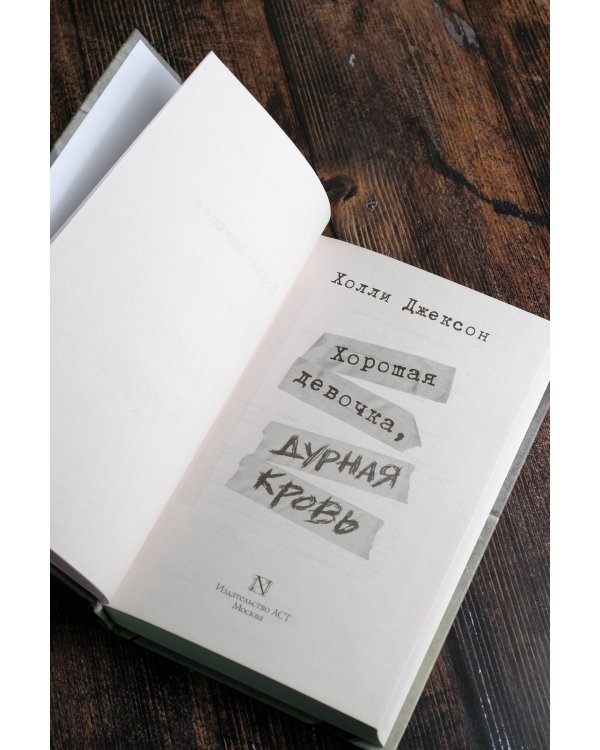 Холли Джексон
Хорошая
девочка,
ДУРНАЯ
КРОВЬ
N
Издательство АСТ
Москва